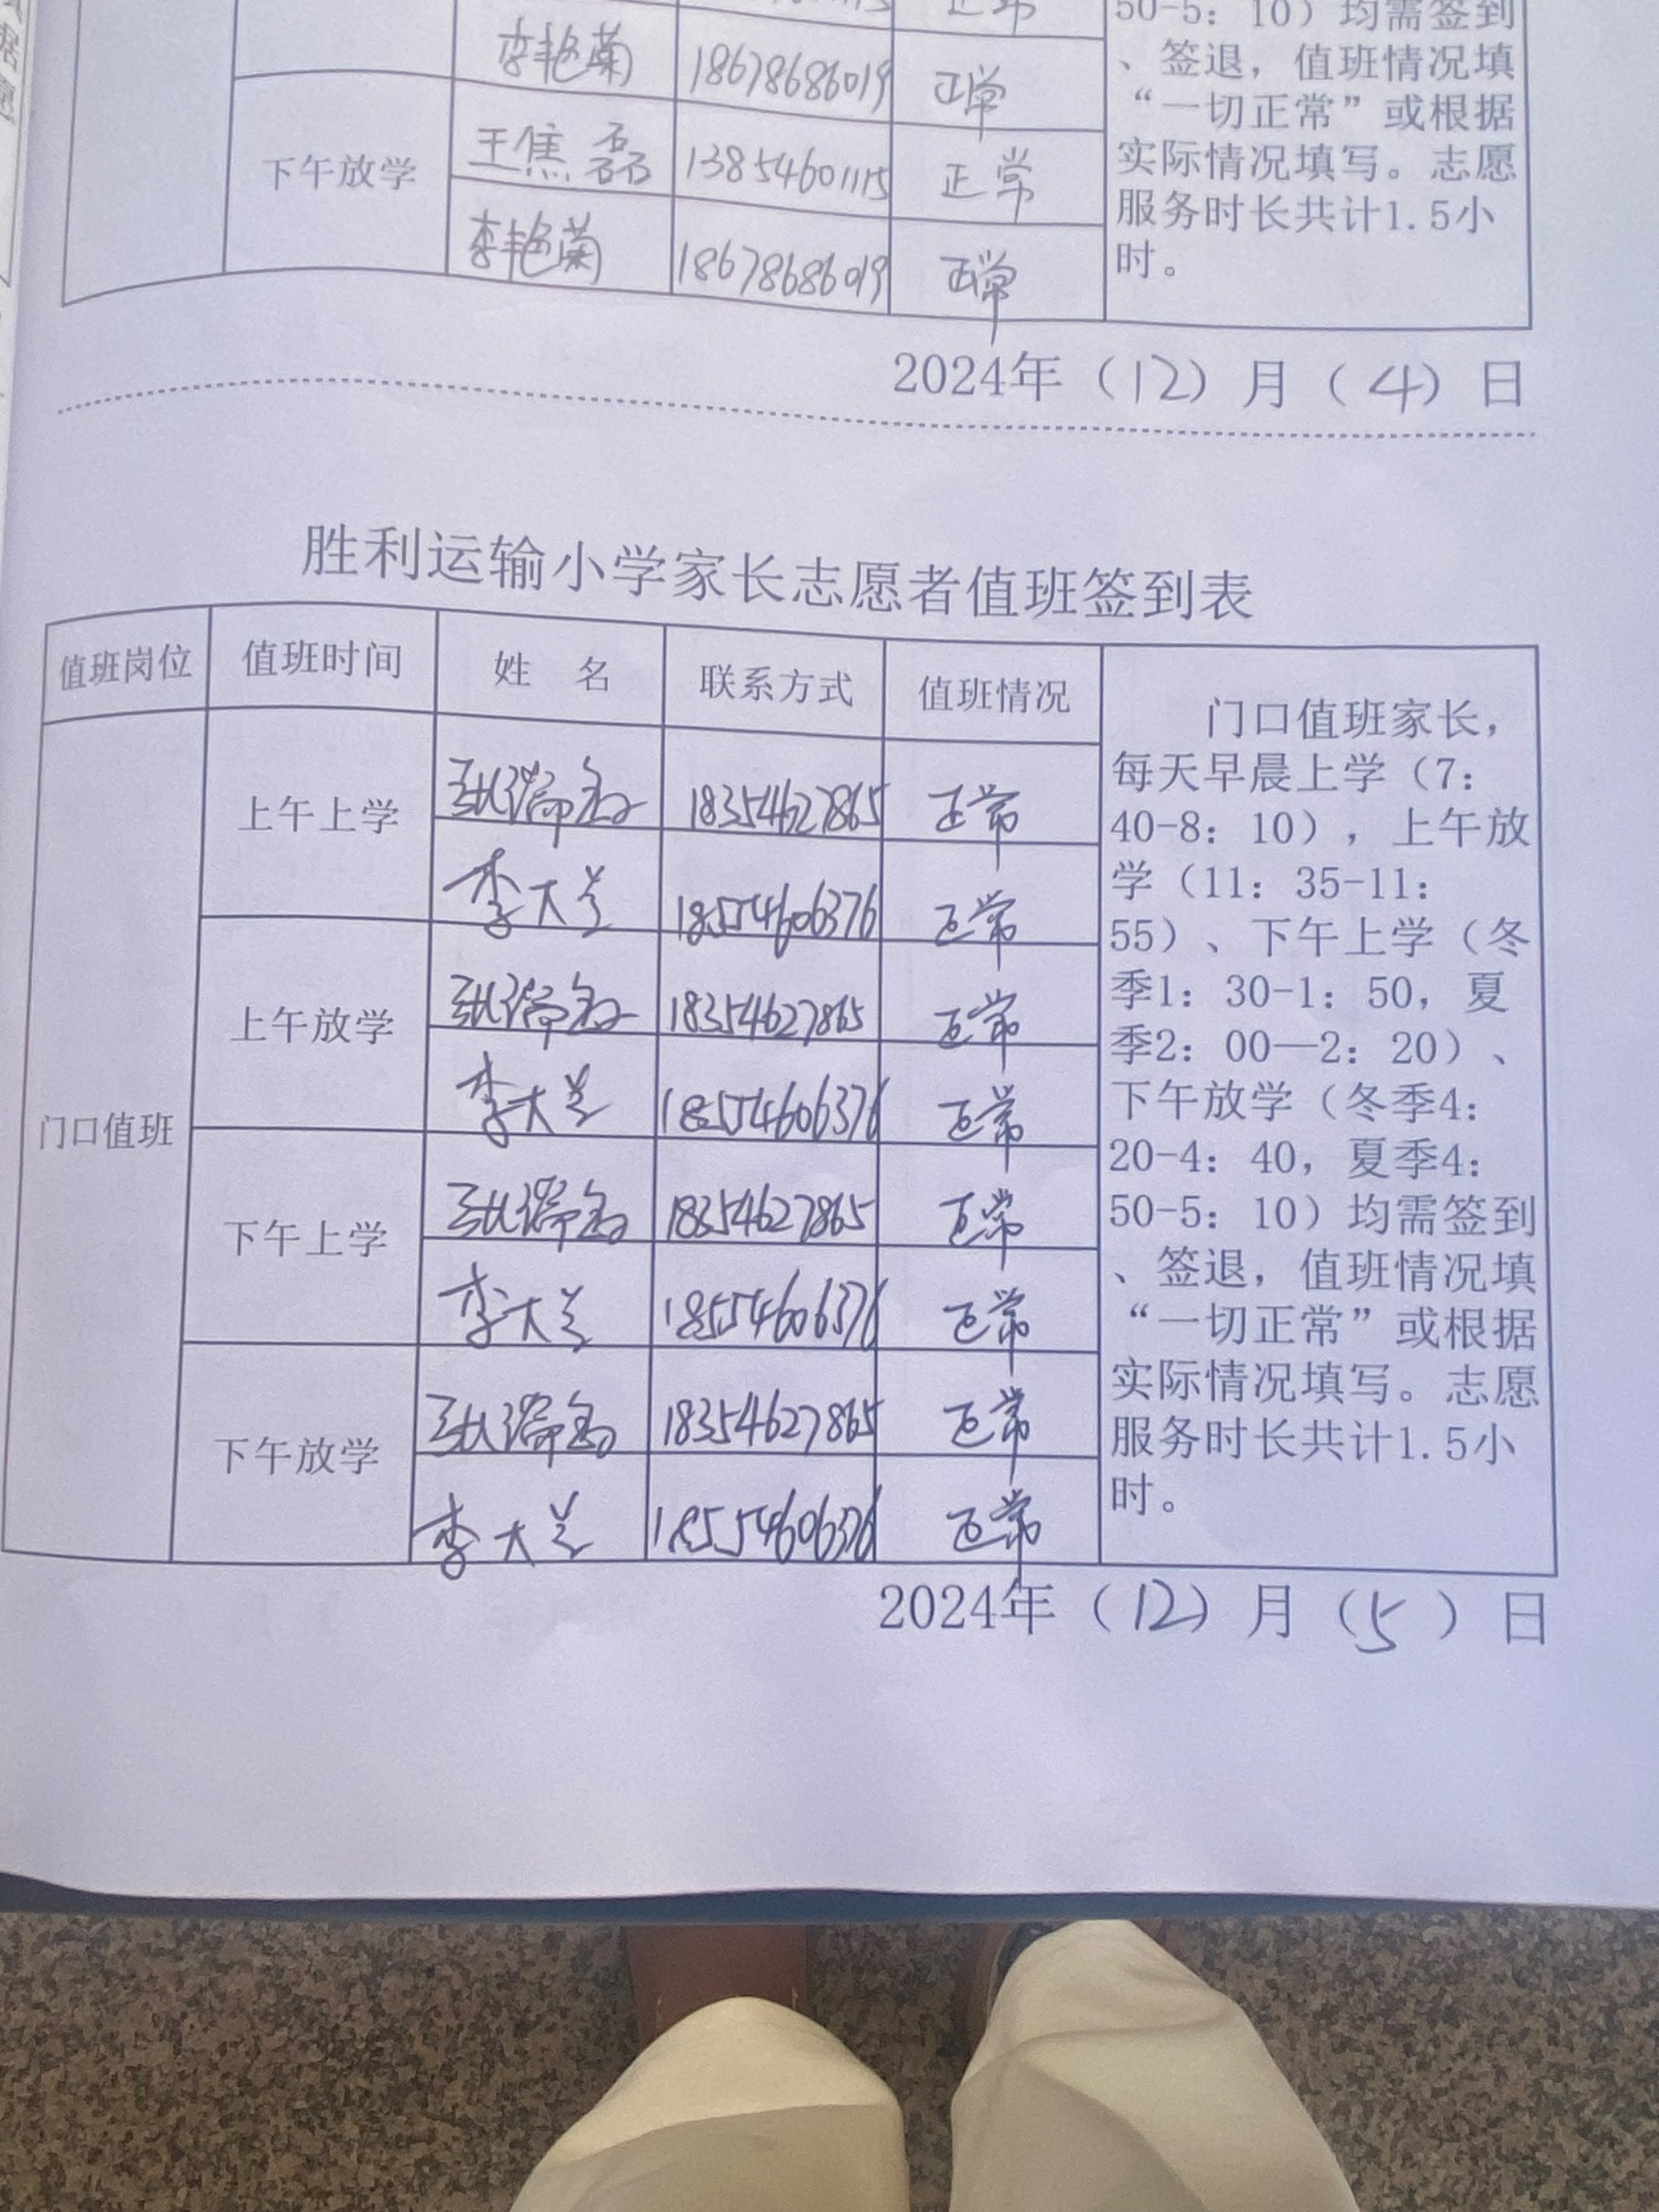 50-5：10）均需签到
李艳菊 18678686019 正常
、签退，值班情况填
“一切正常”或根据
下午放学 王焦磊 13854601115 正常
实际情况填写。志愿
服务时长共计1.5小
李艳菊 18678686019 正常
时。
2024年（12）月（4）日
胜利运输小学家长志愿者值班签到表
值班岗位 值班时间 姓 名 联系方式 值班情况
门口值班
上午上学 18354627865 正常
李大兰 18554606376 正常
上午放学 18354627865 正常
李大兰 18554606376 正常
下午上学 18354627865 正常
李大兰 18554606376 正常
下午放学 18354627865 正常
李大兰 18554606376 正常
门口值班家长，
每天早晨上学（7：
40-8：10），上午放
学（11：35-11：
55）、下午上学（冬
季1：30-1：50，夏
季2：00—2：20）、
下午放学（冬季4：
20-4：40，夏季4：
50-5：10）均需签到
、签退，值班情况填
“一切正常”或根据
实际情况填写。志愿
服务时长共计1.5小
时。
2024年（12）月（5）日